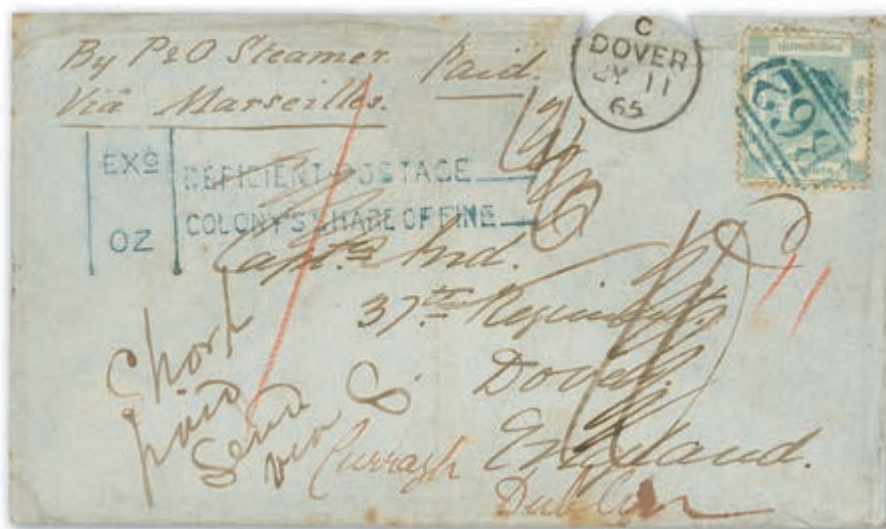 By P&O Steamer.
Via Marseilles.
Paid.
C
DOVER
MY 11
65
HONG KONG
B62
EXG
OZ
DEFICIENT POSTAGE
COLONY'S SHARE OF FINE
Captn. Ind.
37th Regiment
Dover
England.
Short
paid
Send
via S
Curragh
Dublin